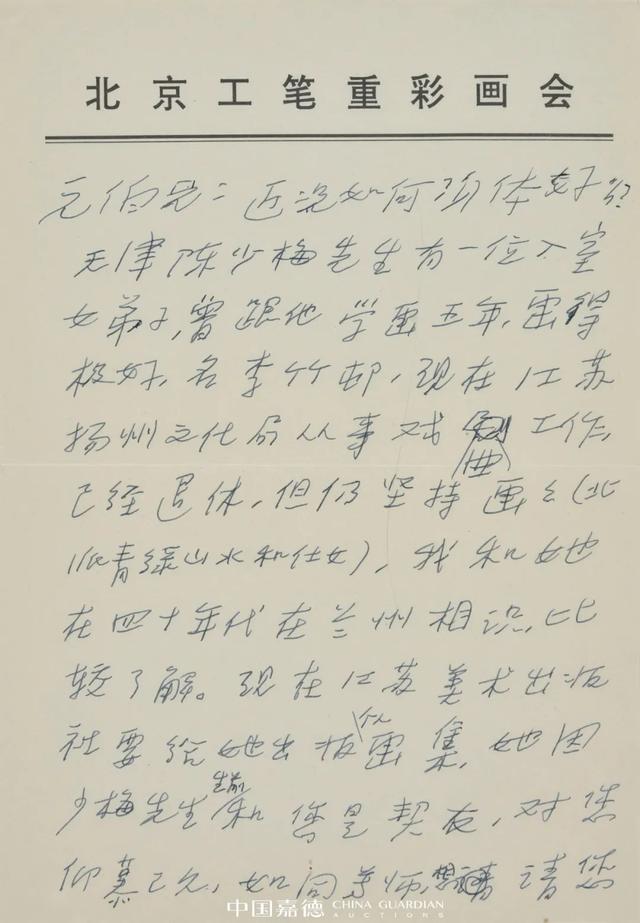 北京工笔重彩画会
元伯兄：近况如何？身体好？
天津陈少梅先生有一位入室
女弟子，曾跟他学画五年，画得
极好，名李竹邨，现在江苏
扬州文化局从事戏曲工作，
已经退休，但仍坚持画（北
派青绿山水和仕女），我和她
在四十年代在兰州相识，比
较了解。现在江苏美术出版
社要给她出版个人画集，她因
少梅先生生前和您是契友，对您
仰慕已久，如同尊师，想请您
中国嘉德 CHINA GUARDIAN
AUCTIONS